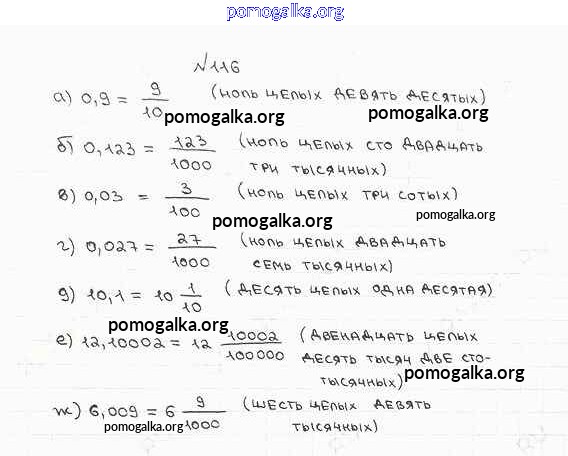 pomogalka.org
№116
а) 0,9 = 9/10 (ноль целых девять десятых)
pomogalka.org pomogalka.org
б) 0,123 = 123/1000 (ноль целых сто двадцать
три тысячных)
в) 0,03 = 3/100 (ноль целых три сотых)
pomogalka.org pomogalka.org
г) 0,027 = 27/1000 (ноль целых двадцать
семь тысячных)
д) 10,1 = 10 1/10 (десять целых одна десятая)
pomogalka.org
е) 12,10002 = 12 10002/100000 (двенадцать целых
десять тысяч две сто-
тысячных)
pomogalka.org
ж) 6,009 = 6 9/1000 (шесть целых девять
тысячных)
pomogalka.org